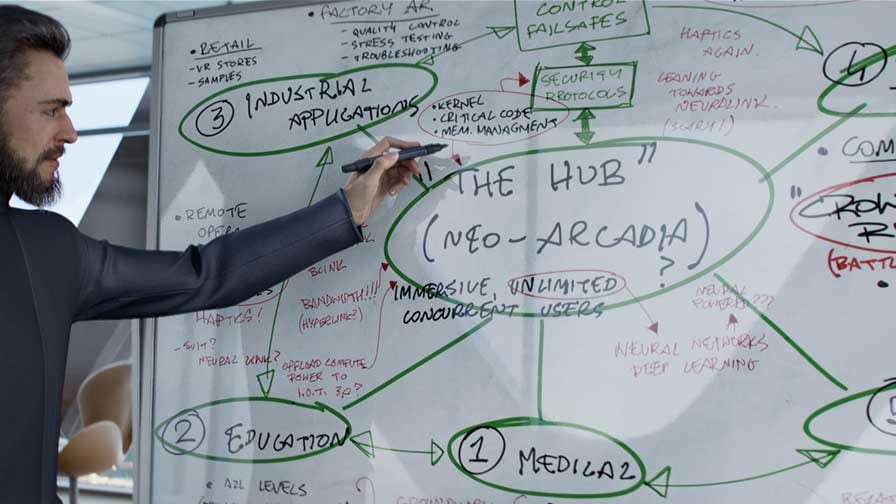 FACTORY AR
- QUALITY CONTROL
- STRESS TESTING
- TROUBLESHOOTING
• RETAIL
- VR STORES
- SAMPLES
3 INDUSTRIAL
APPLICATIONS
CONTROL
FAILSAFES
SECURITY
PROTOCOLS
• KERNEL
• CRITICAL CODE
• MEM. MANAGMENT
HAPTICS
AGAIN.
LEANING
TOWARDS
NEUROLINK.
(SCURY!)
4
• COM
"CROW
(BATTL
"THE HUB"
(NEO-ARCADIA)
?
IMMERSIVE, UNLIMITED
CONCURRENT USERS
NEURAL
POWERED???
NEURAL NETWORKS
DEEP LEARNING
• REMOTE
OPER
BLINK
BANDWIDTH!!!
(HYPERLINK?)
HAPTICS!
- SUIT?
NEURAL LINK?
OFFLOAD COMPUTE
POWER TO
I.O.T. 3.0?
2 EDUCATION
• ALL LEVELS
1 MEDICAL
5